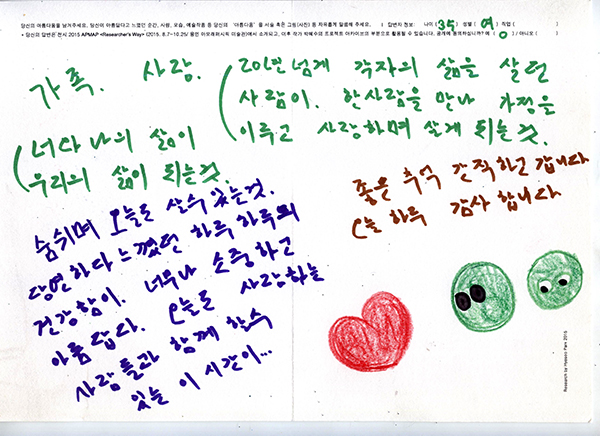 당신의 아름다움을 남겨주세요. 당신이 아름답다고 느꼈던 순간, 사람, 모습, 예술작품 등 당신의 '아름다움' 을 서술 혹은 그림(사진) 등 자유롭게 말씀해 주세요. | 답변자 정보: 나이 (35) 성별 (여) 직업 ( )
• 당신의 답변은 전시 (2015 APMAP <Researcher's Way> (2015. 8.7~10.25) 용인 아모레퍼시픽 미술관)에서 소개되고, 이후 작가 박혜수의 프로젝트 아카이브의 부분으로 활용될 수 있습니다. 공개에 동의하십니까? 예 ( ) / 아니오 ( )
가족. 사랑.
(너다 나의 삶이
우리의 삶이 되는것.
(20년 넘게 각자의 삶을 살던
사람이. 한사람을 만나 가정을
이루고 사랑하며 살게 되는것.
숨쉬며 오늘도 살수 있는것.
당연하다 느꼈던 하루 하루의
건강함이. 너무나 소중하고
아름답다. 오늘도 사랑하는
사람들과 함께 할수
있는 이 시간이...
좋은 추억 간직하고 갑니다
오늘 하루 감사 합니다
Research by Hyesoo Park 2015